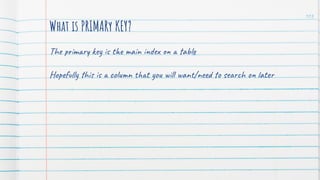 What is PRIMARY KEY?
The primary key is the main index on a table
Hopefully this is a column that you will want/need to search on later